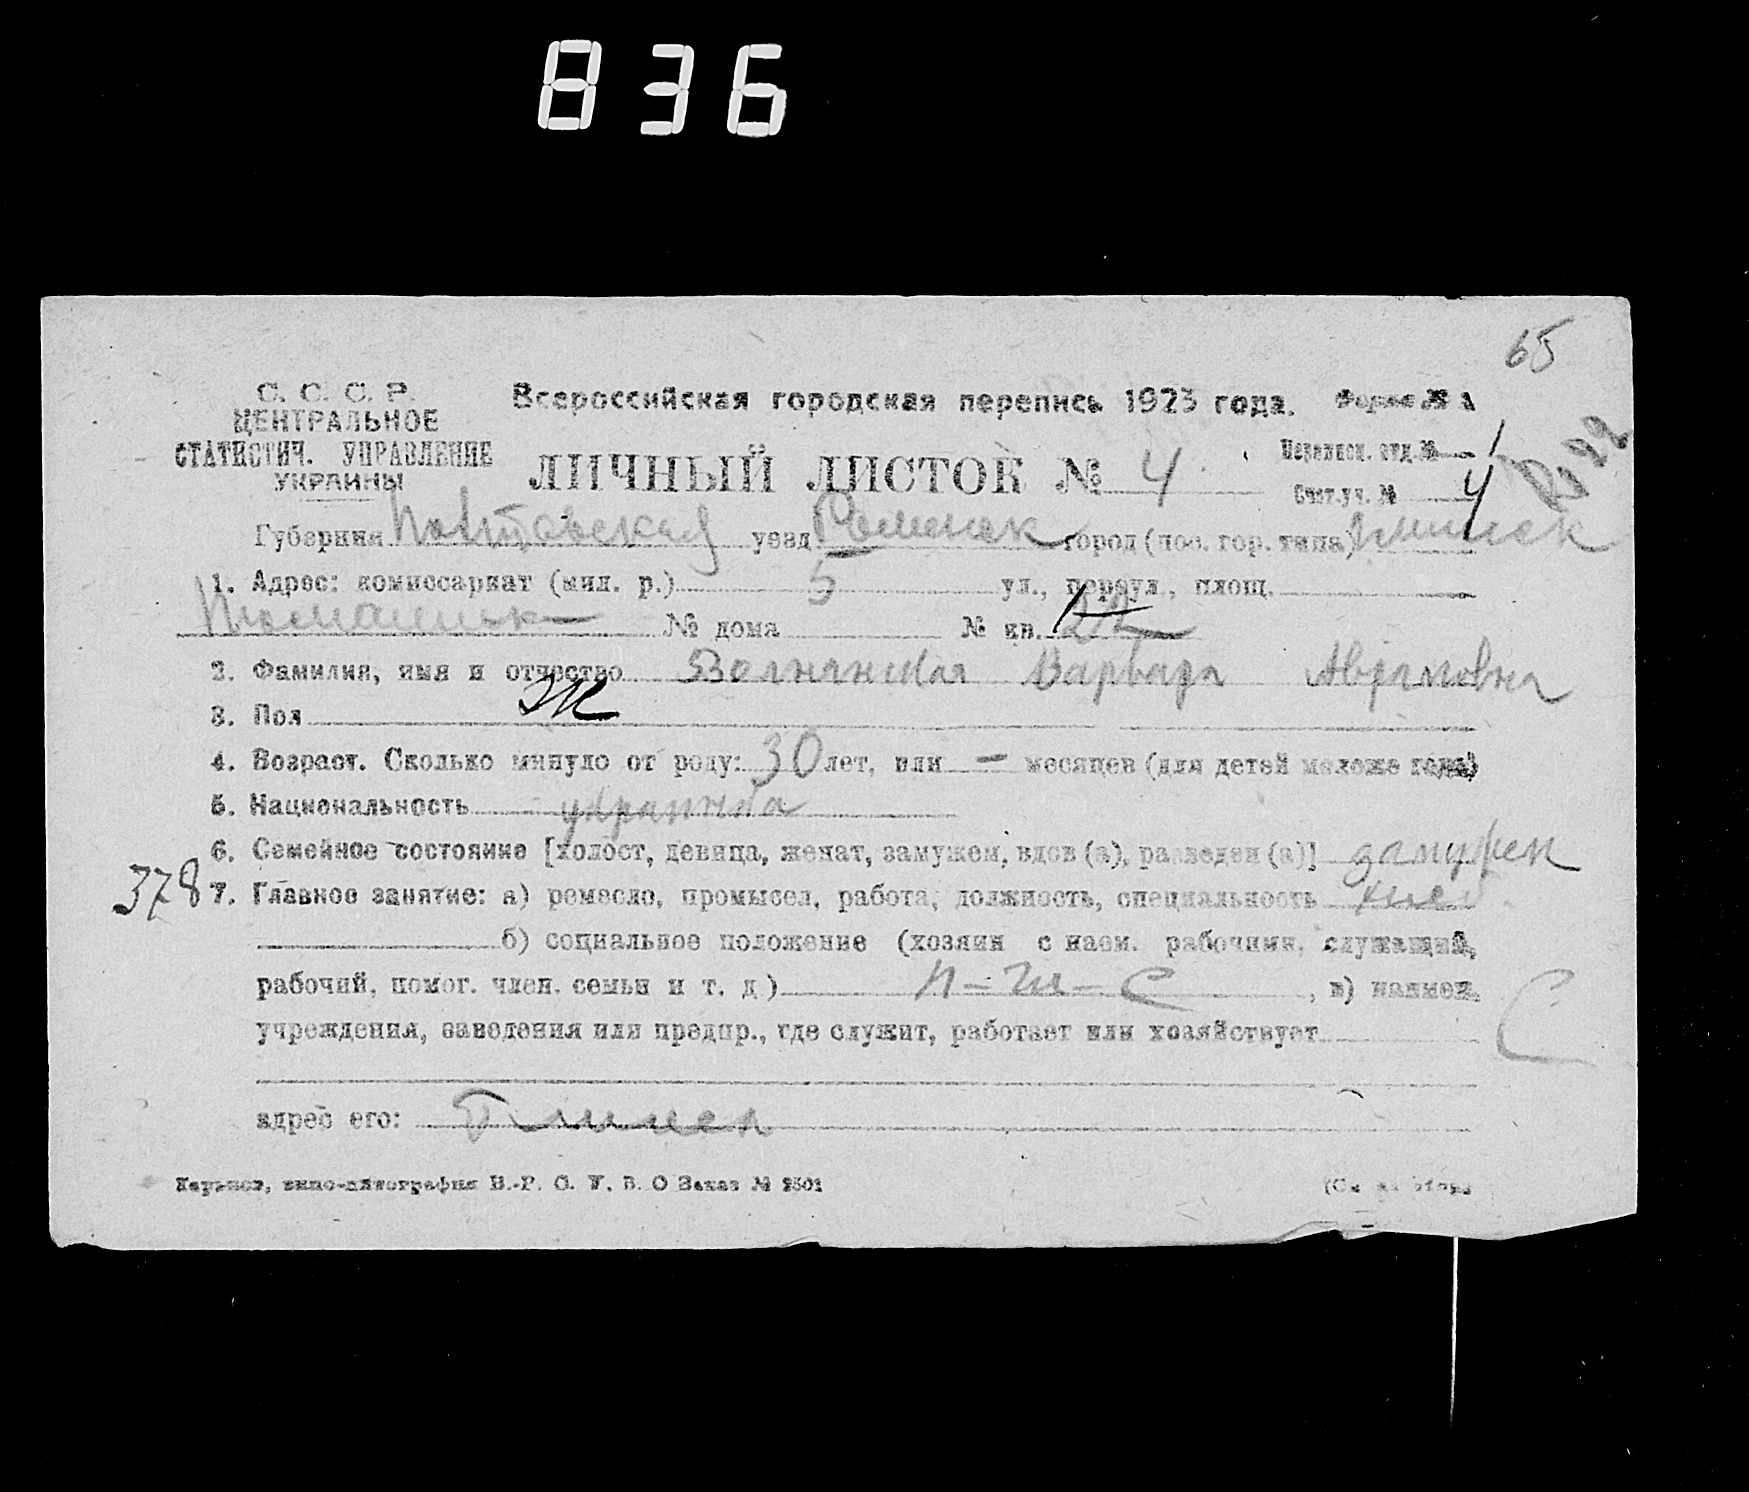 836
65
С. С. С. Р.
ЦЕНТРАЛЬНОЕ
СТАТИСТИЧ. УПРАВЛЕНИЕ
УКРАИНЫ
Всероссийская городская перепись 1923 года. Форма № А
ЛИЧНЫЙ ЛИСТОК № 4
Переписн. отд. № 1
Счет. уч. № 4
Губерния Полтавская уезд Роменск город (пос. гор. типа)
1. Адрес: комиссариат (мил. р.) 5 ул., переул., площ.
№ дома № кв.
2. Фамилия, имя и отчество Варвара Аврамовна
3. Пол Ж
4. Возраст. Сколько минуло от роду: 30 лет, или – месяцев (для детей моложе года)
5. Национальность украинка
6. Семейное состояние [холост, девица, женат, замужем, вдов (а), разведен (а)] замужем
378 7. Главное занятие: а) ремесло, промысел, работа, должность, специальность
б) социальное положение (хозяин с наем. рабочими, служащий,
рабочий, помог. член. семьи и т. д.) , в) наимен.
С
учреждения, заведения или предпр., где служит, работает или хозяйствует
адрес его: